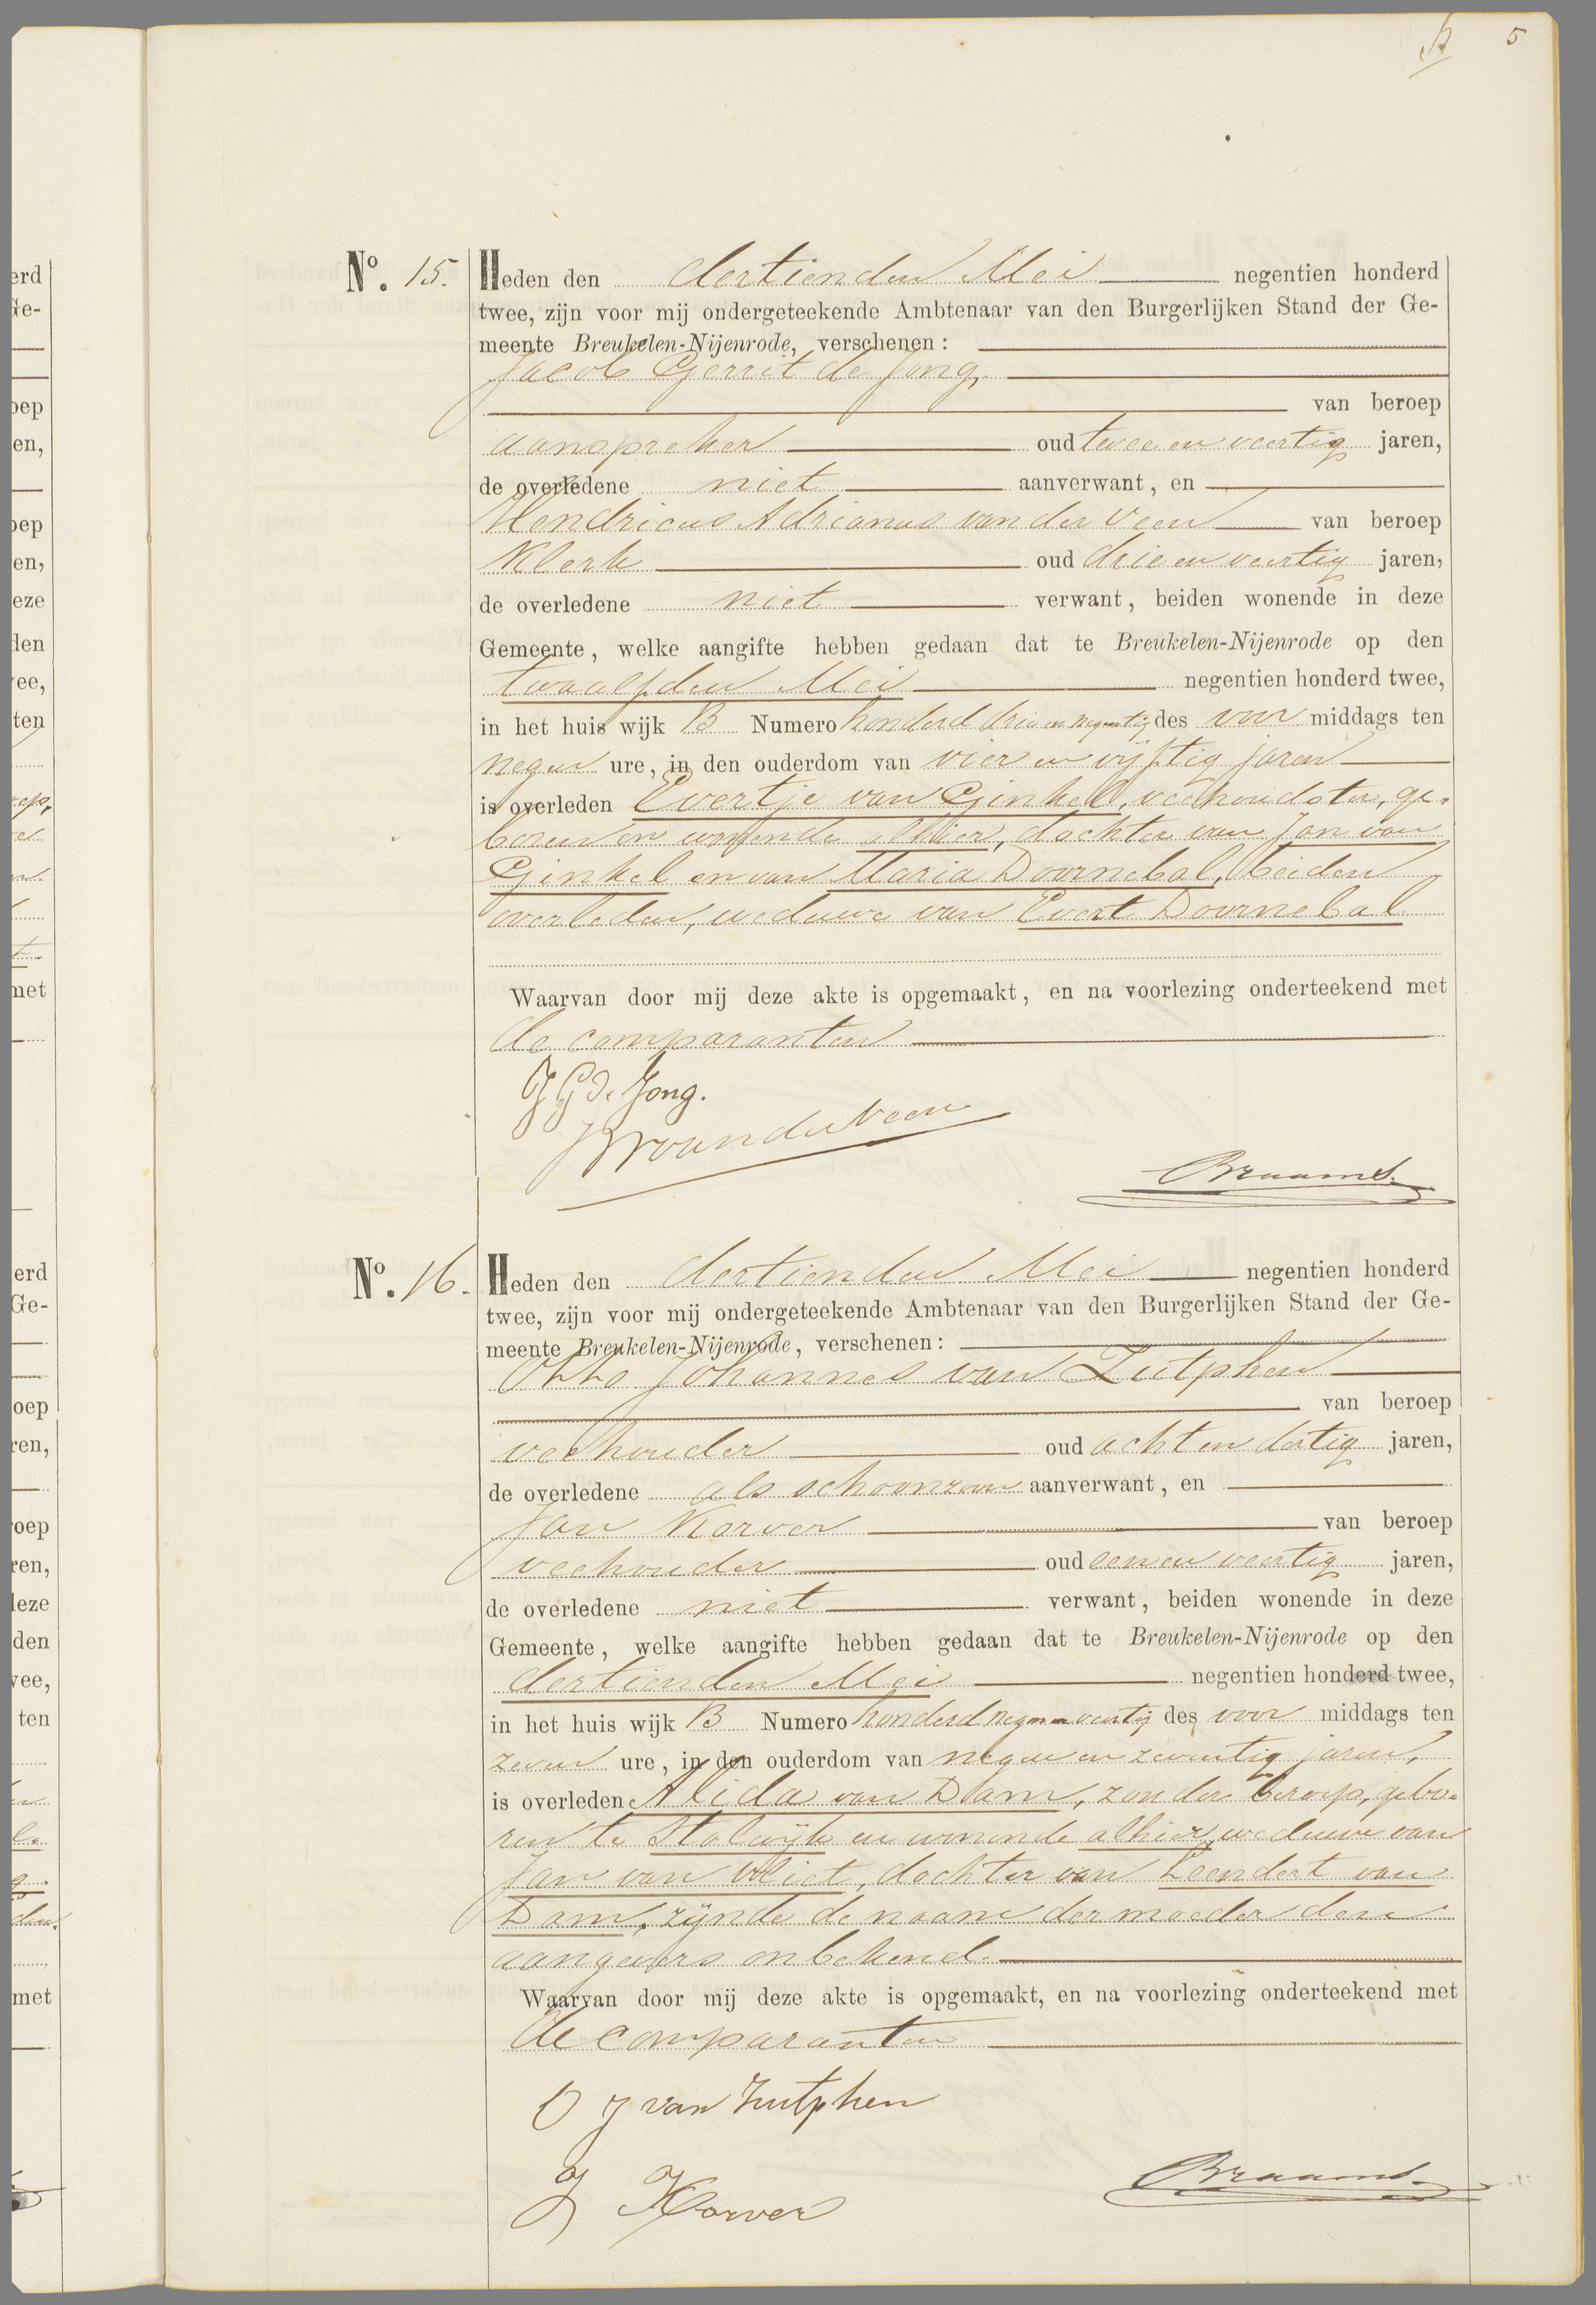 5
No. 15. Heden den dertienden Mei negentien honderd
twee, zijn voor mij ondergeteekende Ambtenaar van den Burgerlijken Stand der Ge-
meente Breukelen-Nijenrode, verschenen:
Jacob Gerrit de Jong,
van beroep
aanspreker oud twee en veertig jaren,
de overledene niet aanverwant, en
Hendricus Adrianus van der Veen van beroep
Klerk oud drie en veertig jaren,
de overledene niet verwant, beiden wonende in deze
Gemeente, welke aangifte hebben gedaan dat te Breukelen-Nijenrode op den
twaalfden Mei negentien honderd twee,
in het huis wijk B Numero honderd drie en negentig des voor middags ten
negen ure, in den ouderdom van vier en vijftig jaren
is overleden Evertje van Ginkel, veehoudster, ge-
boren en wonende alhier, dochter van Jan van
Ginkel en van Maria Doornebal, beiden
overleden, weduwe van Evert Doornebal
Waarvan door mij deze akte is opgemaakt, en na voorlezing onderteekend met
de comparanten
J G de Jong.
van der Veen
Braams.
No. 16. Heden den dertienden Mei negentien honderd
twee, zijn voor mij ondergeteekende Ambtenaar van den Burgerlijken Stand der Ge-
meente Breukelen-Nijenrode, verschenen:
Otto Johannes van Zutphen
van beroep
veehouder oud acht en dertig jaren,
de overledene als schoonzoon aanverwant, en
Jan Korver van beroep
veehouder oud een en veertig jaren,
de overledene niet verwant, beiden wonende in deze
Gemeente, welke aangifte hebben gedaan dat te Breukelen-Nijenrode op den
dertienden Mei negentien honderd twee,
in het huis wijk B Numero honderd negen en veertig des voor middags ten
zeven ure, in den ouderdom van negen en zeventig jaren,
is overleden Alida van Dam, zonder beroep, gebo-
ren te Stolwijk en wonende alhier, weduwe van
Jan van Vliet, dochter van Leendert van
Dam, zijnde de naam der moeder den
aangevers onbekend.
Waarvan door mij deze akte is opgemaakt, en na voorlezing onderteekend met
de comparanten
O J van Zutphen
J Korver
Braams.